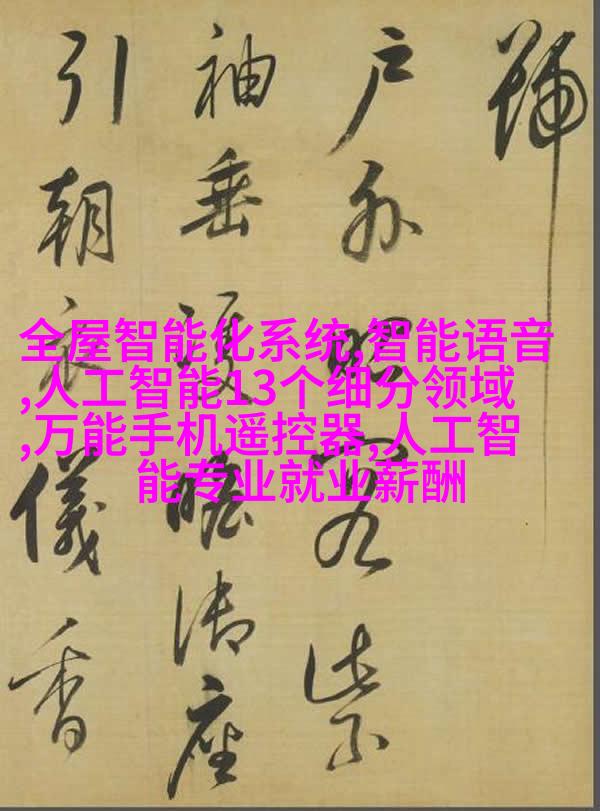 全屋智能化系统,智能语音
,人工智能13个细分领域
,万能手机遥控器,人工智
能专业就业薪酬
歸
户外昭容紫
袖垂雙瞻御座
引朝儀香